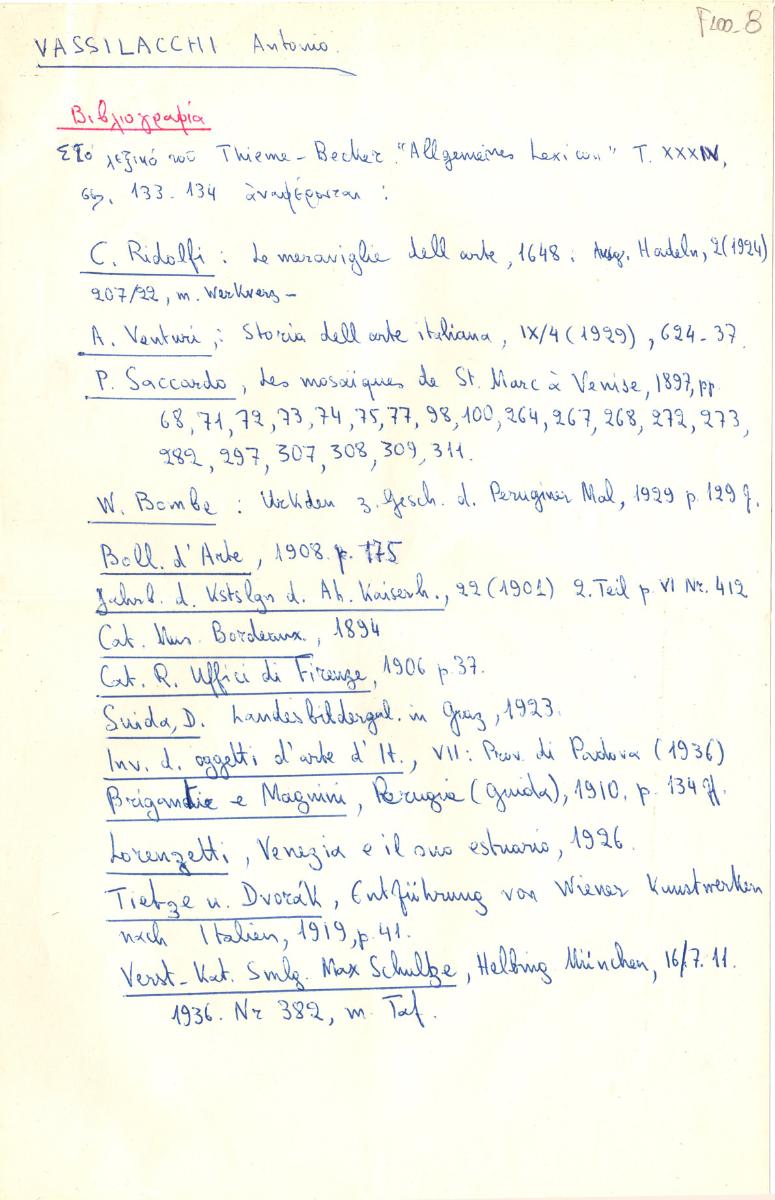 F100_8
VASSILACCHI Antonio.
Βιβλιογραφία
Στό λεξικό τοῦ Thieme-Becker "Allgemeines Lexicon" T. XXXIV,
σσ. 133-134 ἀναφέρονται :
C. Ridolfi : Le meraviglie dell'arte, 1648 : Ausg. Hadeln, 2(1924)
207/22, m. Werkverz –
A. Venturi, : Storia dell'arte italiana, IX/4 (1929), 624-37.
P. Saccardo, Les mosaïques de St. Marc à Venise, 1897, pp.
68, 71, 72, 73, 74, 75, 77, 98, 100, 264, 267, 268, 272, 273,
282, 297, 307, 308, 309, 311.
W. Bombe : Urkden z. Gesch. d. Peruginer Mal, 1929 p. 129 f.
Boll. d'Arte, 1908. p. 175
Jahrb. d. Kstslgn d. Ah. Kaiserh., 22 (1901) 2. Teil p. VI Nr. 412
Cat. Mus. Bordeaux., 1894
Cat. R. Uffici di Firenze, 1906 p. 37.
Suida, D. Landesbildergal. in Graz, 1923.
Inv. d. oggetti d'arte d'It., VII: Prov. di Padova (1936)
Brigantie e Magnini, Perugia (Guida), 1910. p. 134 ff.
Lorenzetti, Venezia e il suo estuario, 1926.
Tietze u. Dvorák, Entführung von Wiener Kunstwerken
nach Italien, 1919, p. 41.
Verst-Kat. Smlg. Max Schultze, Helbing München, 16/7. 11.
1936. Nr 382, m. Taf.